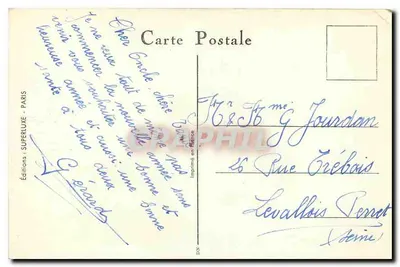 Carte Postale
Cher Oncle chère T
Je ne veux tout de même pas
commencer la nouvelle année sans
venir vous souhaiter une bonne et
heureuse année et aussi une bonne
santé à tous deux
Gérard
Editions : SUPERLUXE - PARIS
Imprimé en
Mr & Mme G Jourdan
26 Rue Trébois
Levallois Perret
(Seine)